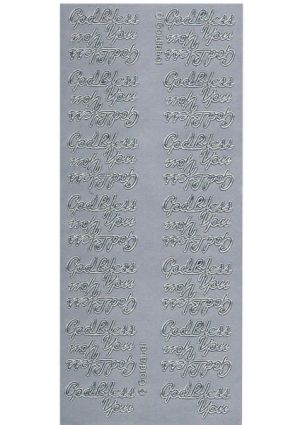 God Bless
You
God Bless
You
God Bless
You
God Bless
You
God Bless
You
God Bless
You
God Bless
You
God Bless
You
God Bless
You
God Bless
You
God Bless
You
God Bless
You
God Bless
You
God Bless
You
God Bless
You
God Bless
You
God Bless
You
God Bless
You
God Bless
You
God Bless
You
God Bless
You
God Bless
You
God Bless
You
God Bless
You
God Bless
You
God Bless
You